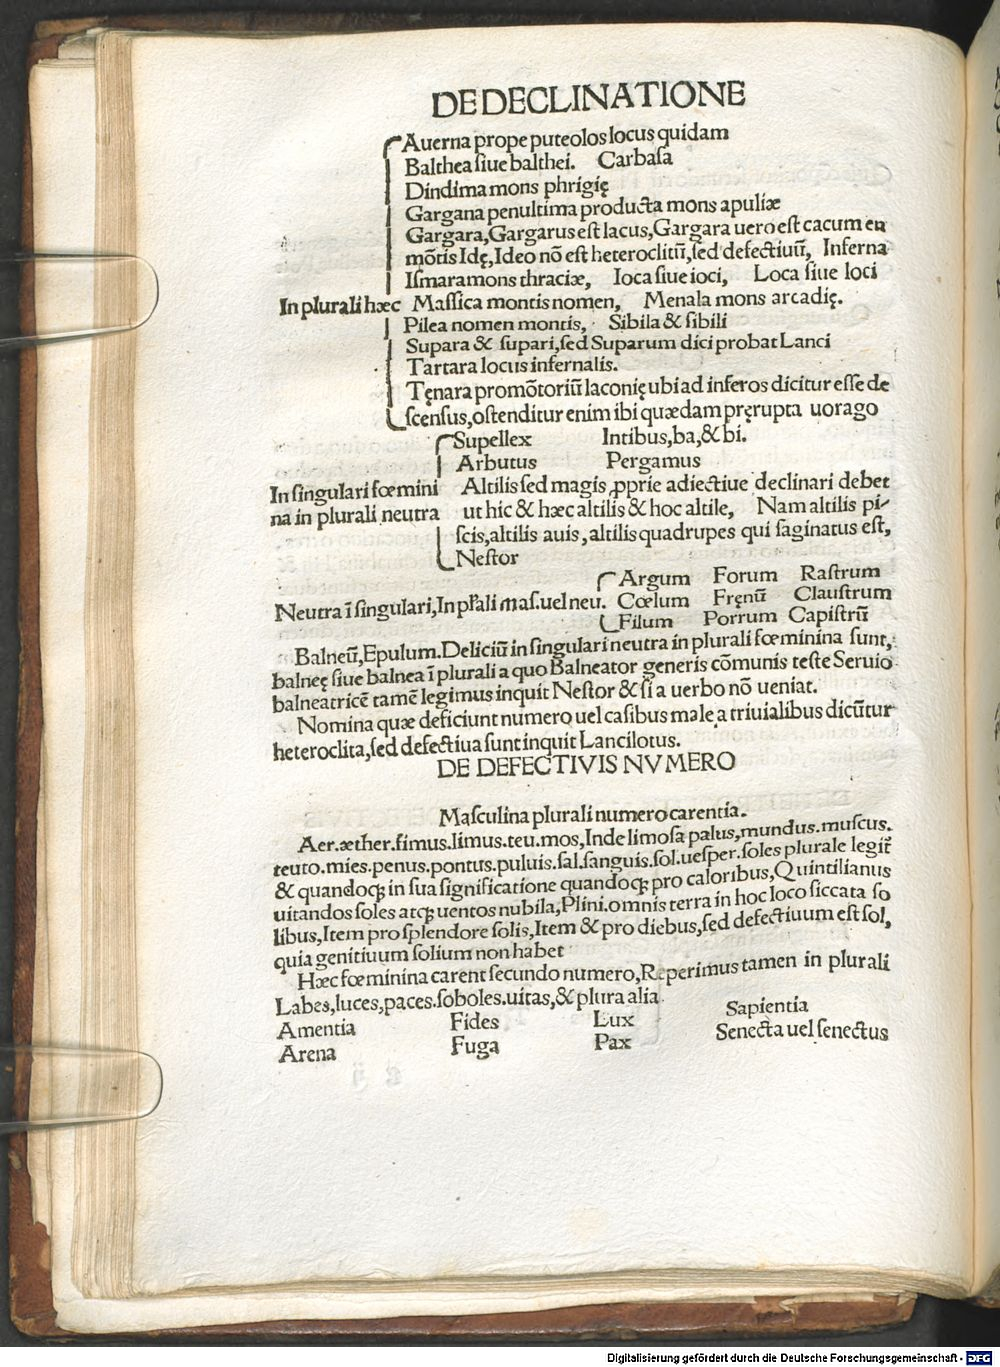 DE DECLINATIONE
Auerna prope puteolos locus quidam
Balthea siue balthei. Carbasa
Dindima mons phrigię
Gargana penultima producta mons apuliæ
Gargara, Gargarus est lacus, Gargara uero est cacumen
mōtis Idę, Ideo nō est heteroclitū, sed defectiuū, Inferna
Ismara mons thraciæ, Ioca siue ioci, Loca siue loci
In plurali hæc Massica montis nomen, Menala mons arcadię.
Pilea nomen montis, Sibila & sibili
Supara & supari, sed Suparum dici probat Lanci
Tartara locus infernalis.
Tęnara promōtoriū laconię ubi ad inferos dicitur esse de
scensus, ostenditur enim ibi quædam pręrupta uorago
Supellex Intibus, ba, & bi.
Arbutus Pergamus
In singulari fœmini Altilis sed magis ꝓprie adiectiue declinari debet
na in plurali neutra ut hic & hæc altilis & hoc altile, Nam altilis pi-
scis, altilis auis, altilis quadrupes qui saginatus est,
Nestor
Argum Forum Rastrum
Neutra ī singulari, In plali mas. uel neu. Cœlum Fręnū Claustrum
Filum Porrum Capistrū
Balneū, Epulum. Deliciū in singulari neutra in plurali fœminina sunt,
balneę siue balnea ī plurali a quo Balneator generis cōmunis teste Seruio
balneatricē tamē legimus inquit Nestor & si a uerbo nō ueniat.
Nomina quæ deficiunt numero uel casibus male a triuialibus dicūtur
heteroclita, sed defectiua sunt inquit Lancilotus.
DE DEFECTIVIS NVMERO
Masculina plurali numero carentia.
Aer. æther. fimus. limus. teu. mos, Inde limosa palus, mundus. muscus.
teuto. mies. penus. pontus. puluis. sal. sanguis. sol. uesper. soles plurale legit̄
& quandoqꝫ in sua significatione quandoqꝫ pro caloribus, Quintilianus
uitandos soles atqꝫ uentos nubila, Plini. omnis terra in hoc loco siccata so
libus, Item pro splendore solis, Item & pro diebus, sed defectiuum est sol,
quia genitiuum solium non habet
Hæc fœminina carent secundo numero, Reperimus tamen in plurali
Labes, luces, paces. soboles. uitas, & plura alia
Amentia Fides Lux Sapientia
Arena Fuga Pax Senecta uel senectus
Digitalisierung gefördert durch die Deutsche Forschungsgemeinschaft - DFG